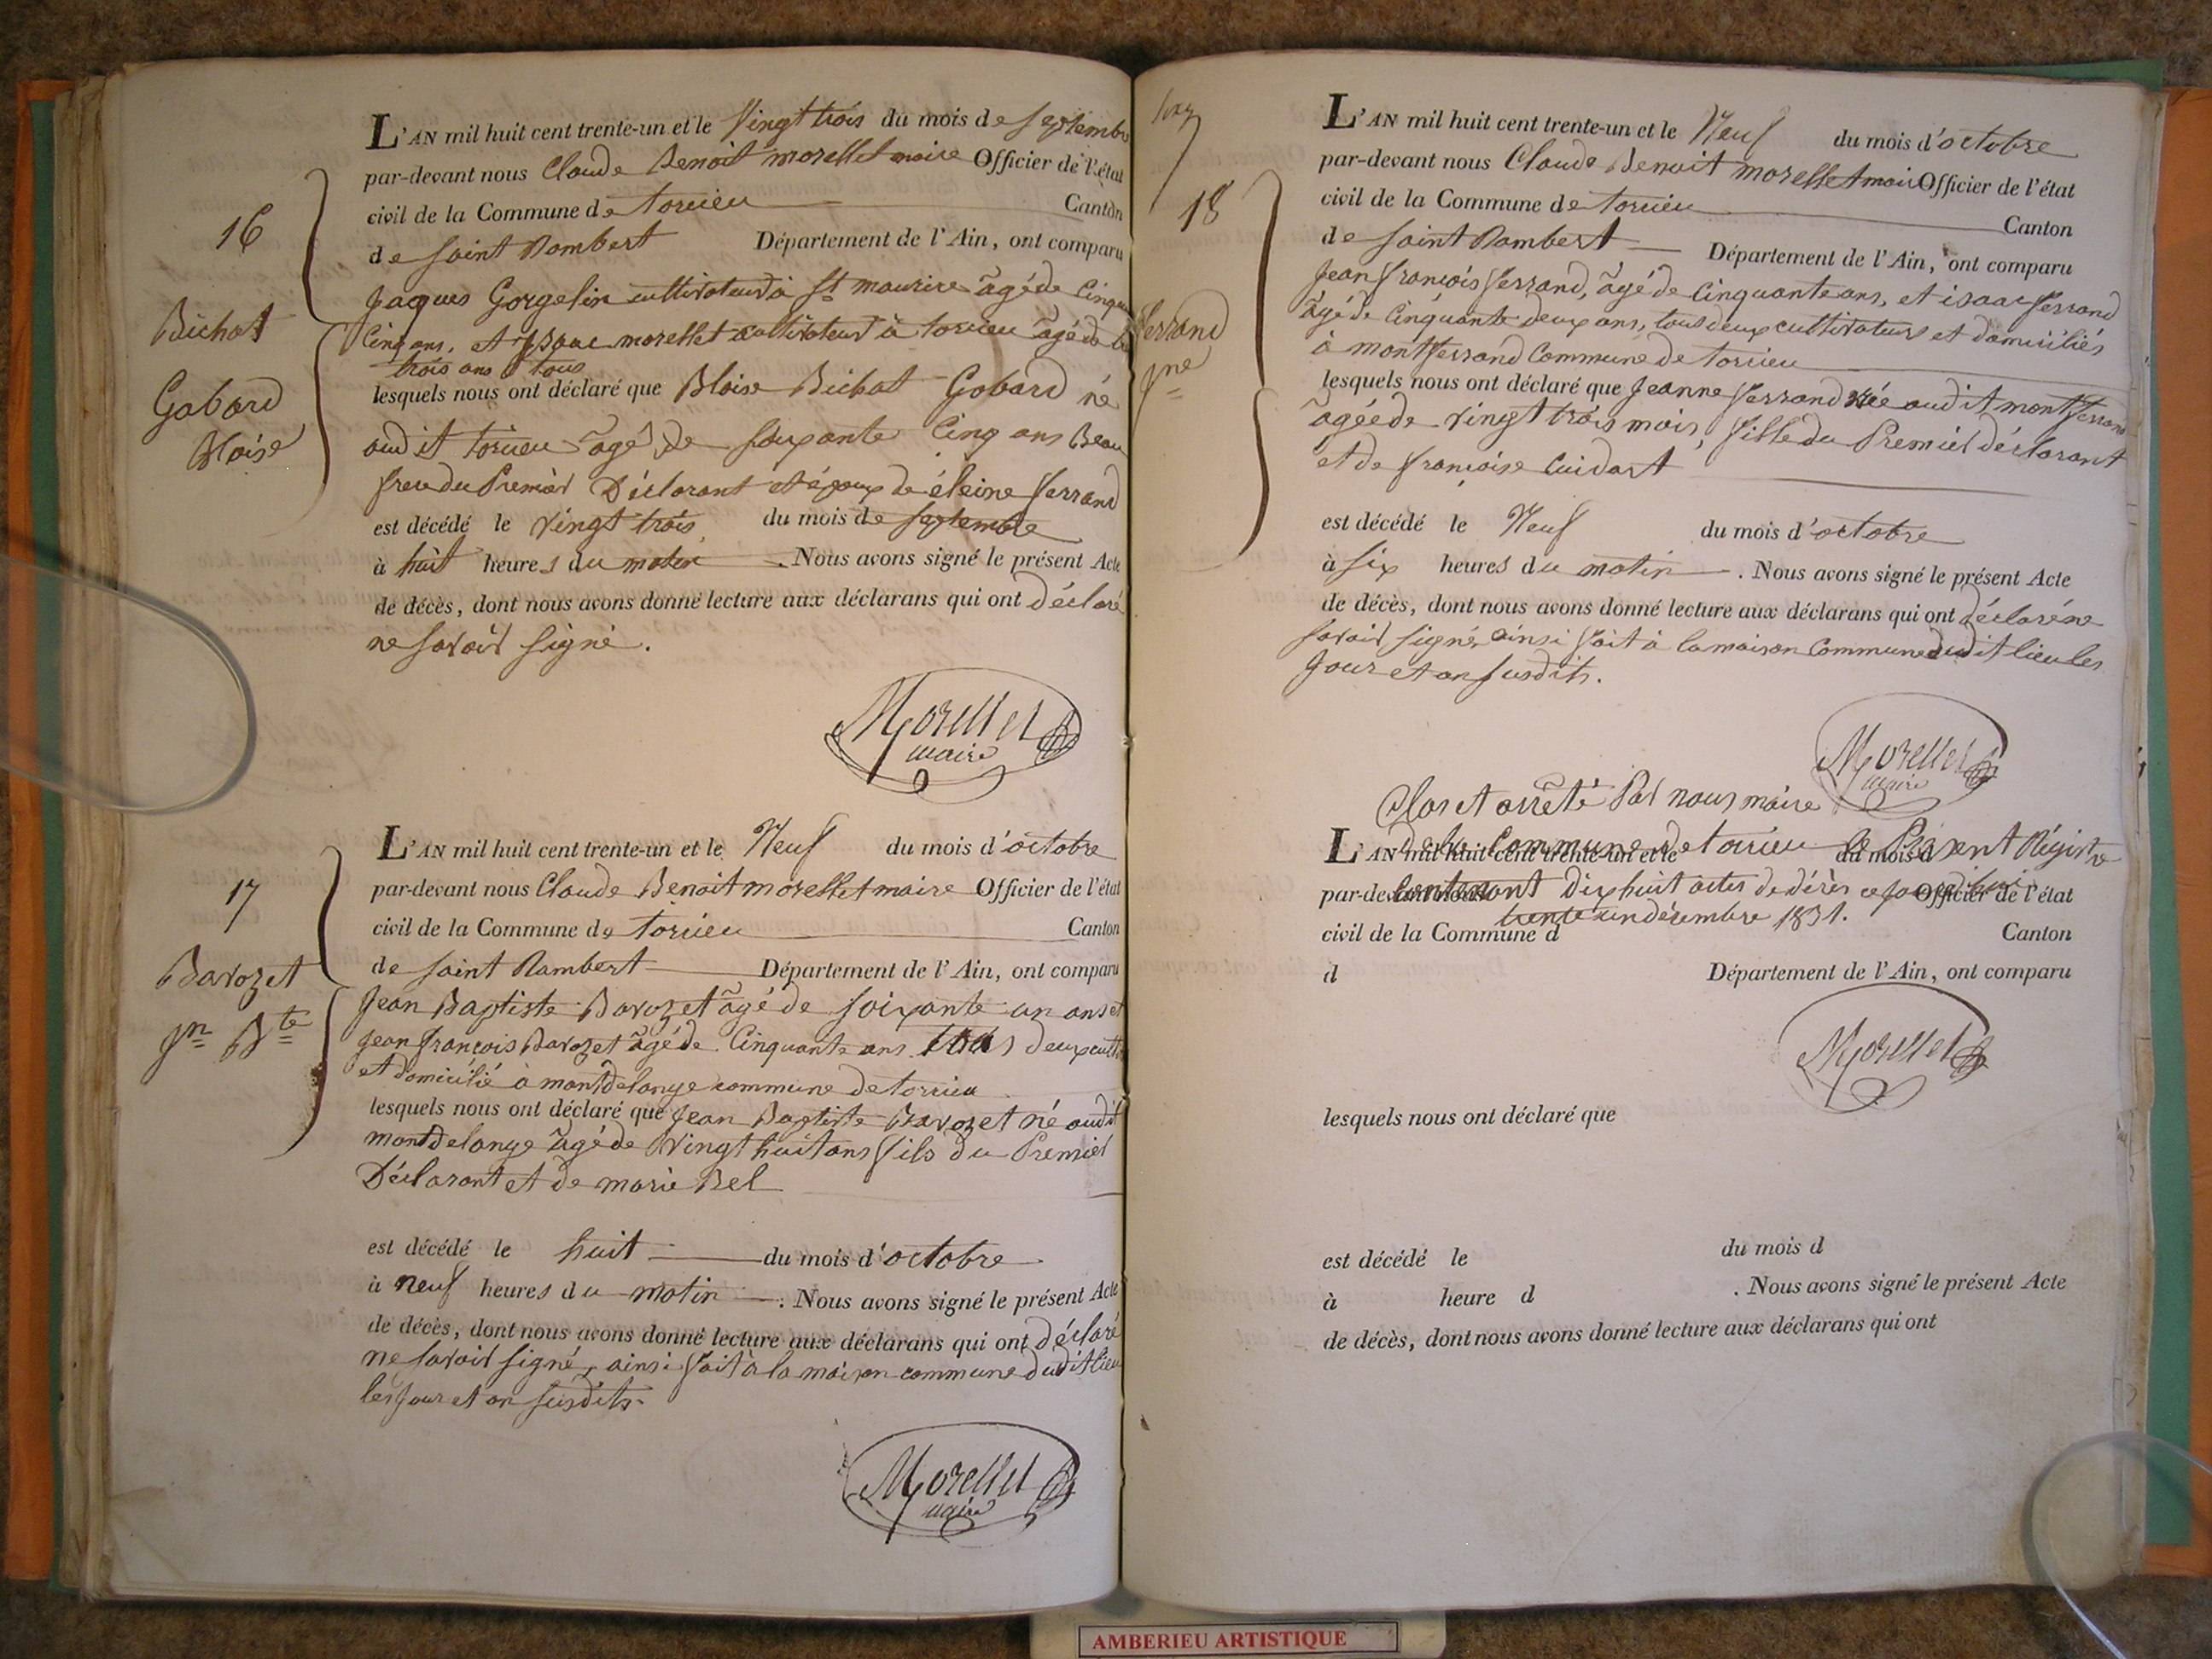 16
Bichat
Gobard
Bloise
L'AN mil huit cent trente-un et le Vingt trois du mois de septembre
par-devant nous Claude Benoit morellet maire Officier de l'état
civil de la Commune de torcieu Canton
de saint Rambert Département de l'Ain, ont comparu
Jaques Gorgelin cultivateur à St maurice âgé de Cinquante
Cinq ans, et Isaac morellet cultivateur à torcieu âgé de
trois ans tous
lesquels nous ont déclaré que Bloise Bichat Gobard né
audit torcieu âgé de soixante Cinq ans Beau
frere du Premier Déclarant et époux de éleine ferrand
est décédé le vingt trois du mois de septembre
à huit heures du matin . Nous avons signé le présent Acte
de décès, dont nous avons donné lecture aux déclarans qui ont déclaré
ne savoir signé.
Morellet
maire
17
Bavozet
Jn Bte
L'AN mil huit cent trente-un et le Neuf du mois d'octobre
par-devant nous Claude Benoit morellet maire Officier de l'état
civil de la Commune de torcieu Canton
de saint Rambert Département de l'Ain, ont comparu
Jean Baptiste Bavozet âgé de soixante un ans et
Jean françois Bavozet âgé de Cinquante ans tous deux
et domicilié à montdelange commune de torcieu
lesquels nous ont déclaré que Jean Baptiste Bavozet né audit
montdelange âgé de Vingt huit ans fils du Premier
Déclarant et de marie Bel
est décédé le huit du mois d'octobre
à neuf heures du matin . Nous avons signé le présent Acte
de décès, dont nous avons donné lecture aux déclarans qui ont déclaré
ne savoir signé, ainsi fait à la maison commune dudit lieu
les jour et an susdits.
Morellet
maire
18
ferrand
Jne
L'AN mil huit cent trente-un et le Neuf du mois d'octobre
par-devant nous Claude Benoit morellet maire Officier de l'état
civil de la Commune de torcieu Canton
de saint Rambert Département de l'Ain, ont comparu
Jean françois ferrand, âgé de Cinquante ans, et isaac ferrand
âgé de Cinquante deux ans, tous deux cultivateurs et domiciliés
à montferrand Commune de torcieu
lesquels nous ont déclaré que Jeanne ferrand née audit montferrand
âgée de vingt trois mois, fille du Premier déclarant
et de françoise Cuidart
est décédé le Neuf du mois d'octobre
à six heures du matin . Nous avons signé le présent Acte
de décès, dont nous avons donné lecture aux déclarans qui ont déclaré ne
savoir signé, ainsi fait à la maison Commune dudit lieu les
jour et an susdits.
Morellet
maire
Clos et arrêté Par nous maire
de la Commune de torcieu le Présent Régistre
contenant Dix huit actes de décès ce jourd'hui
trente un décembre 1831.
L'AN mil huit cent trente-un et le du mois d
par-devant nous Officier de l'état
civil de la Commune d Canton
d Département de l'Ain, ont comparu
Morellet
lesquels nous ont déclaré que
est décédé le du mois d
à heure d . Nous avons signé le présent Acte
de décès, dont nous avons donné lecture aux déclarans qui ont
AMBERIEU ARTISTIQUE